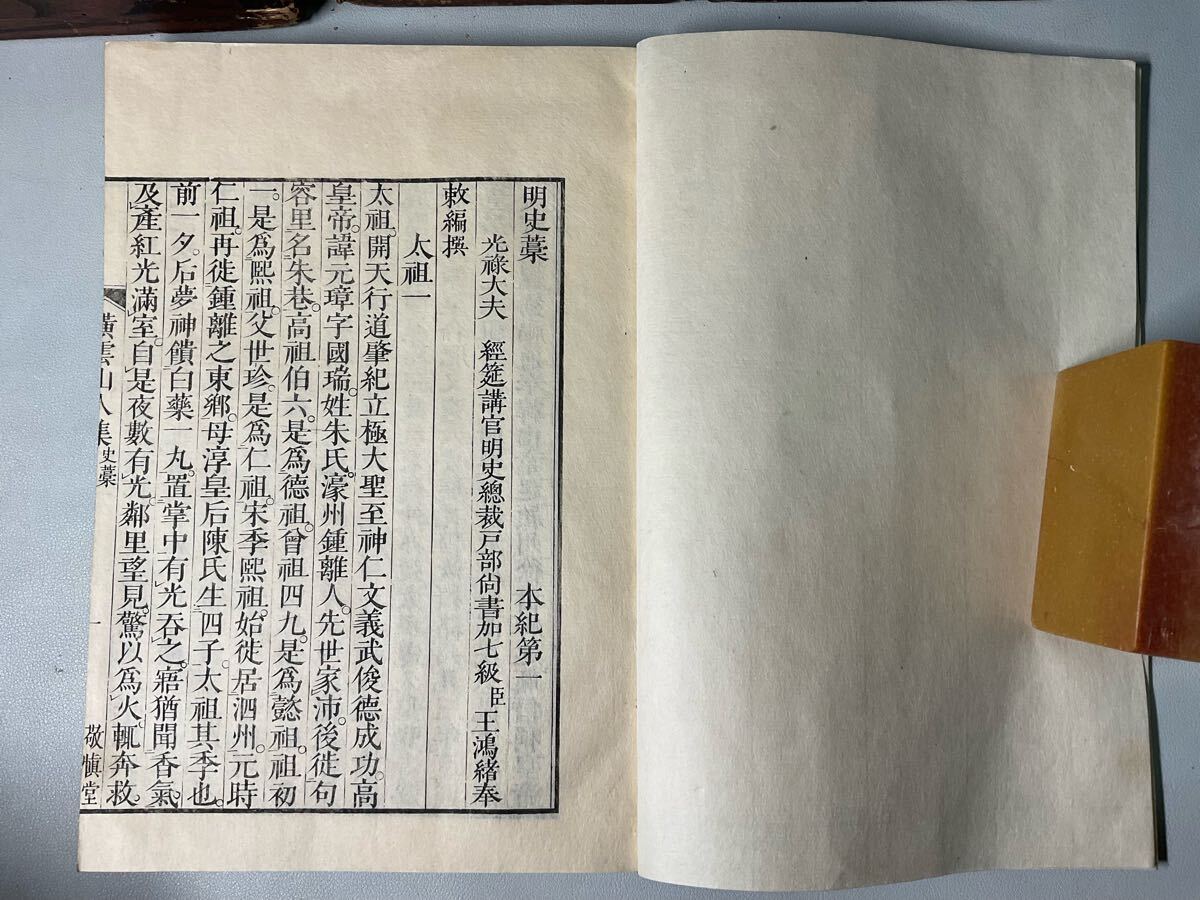 明史藁 本紀第一
光祿大夫 經筵講官明史總裁戶部尙書加七級臣王鴻緖奉
敕編撰
太祖一
太祖。開天行道肇紀立極大聖至神仁文義武俊德成功。高
皇帝。諱元璋字國瑞。姓朱氏。濠州鍾離人。先世家沛。後徙句
容里名朱巷。高祖伯六。是爲德祖。曾祖四九。是爲懿祖。祖初
一。是爲熙祖。父世珍。是爲仁祖。宋季熙祖。始徙居泗州。元時
仁祖。再徙鍾離之東鄕。母淳皇后陳氏生四子。太祖其季也。
前一夕。后夢神饋白藥一丸。置掌中有光吞之。寤猶聞香氣。
及產紅光滿室。自是夜數有光鄰里望見。驚以爲火。輒奔救。
橫雲山人集史藁 一 敬愼堂